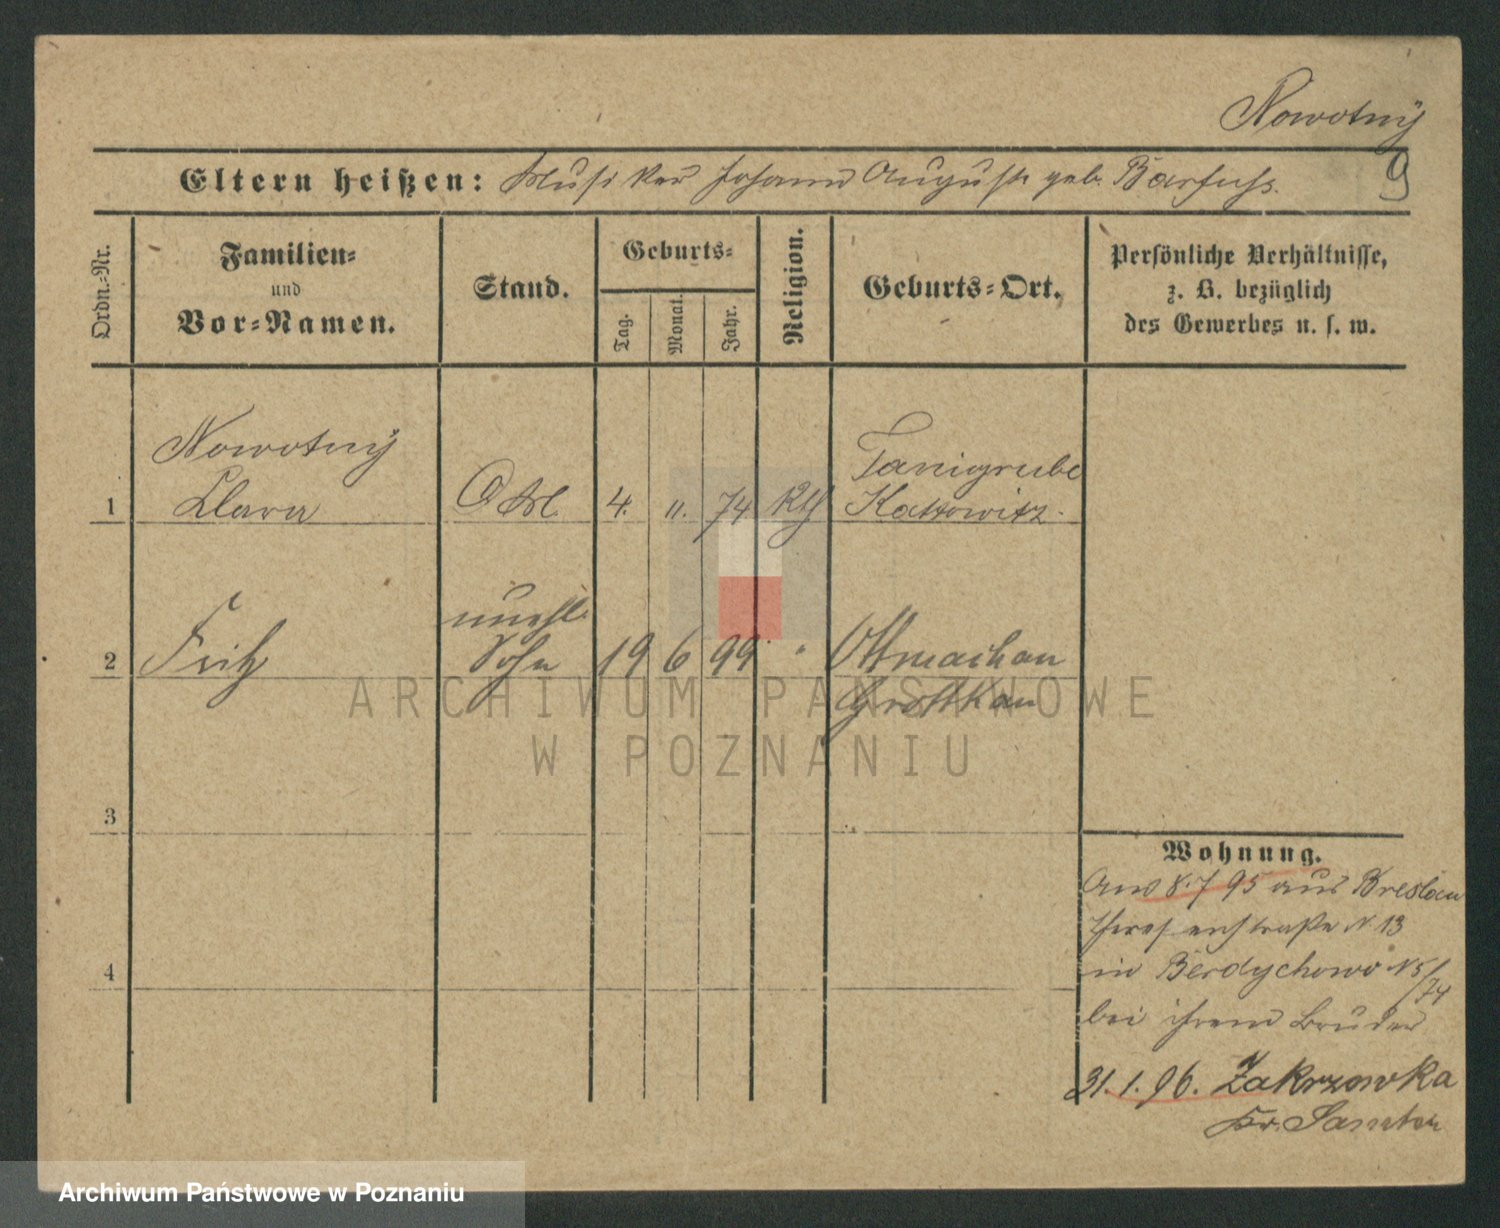 Nowotnÿ
9
Eltern heißen: Musiker Johann Auguste geb. Barfuss.
Ordn.-Nr.
Familien-
und
Vor-Namen.
Stand.
Geburts-
Tag.
Monat.
Jahr.
Religion.
Geburts-Ort.
Persönliche Verhältnisse,
z. B. bezüglich
des Gewerbes u. s. w.
Nowotnÿ
1 Clara 4. 11. 74 Kth Kattowitz.
unehl.
2 Fritz Sohn 19 6 99 " Ottmachau
Grottkau
3
4
Wohnung.
Am 8.7 95 aus Breslau
Theresenstraße N. 13
in Berdychowo N 5/74
bei ihrem Bruder
31.1.96. Zakrzewka
Kr. Samter
ARCHIWUM PAŃSTWOWE
W POZNANIU
Archiwum Państwowe w Poznaniu